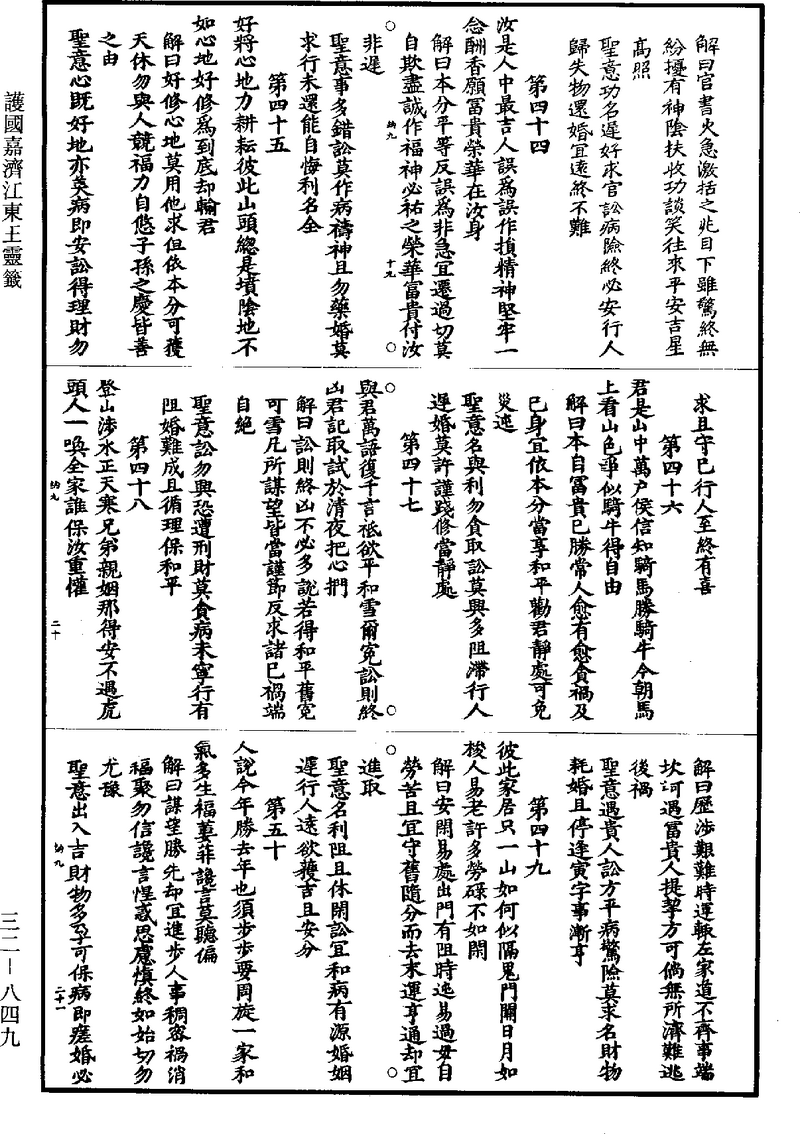 護國嘉濟江東王靈籤
三二－八四九
解曰官書火急激括之兆目下雖驚終無
紛擾有神陰扶收功談笑往來平安吉星
高照
聖意功名遲好求官訟病險終必安行人
歸失物還婚宜遠終不難
第四十四
汝是人中最吉人誤爲誤作損精神堅牢一
念酬香願冨貴榮華在汝身
解曰本分平等反誤爲非急宜遷過切莫
自欺盡誠作福神必祐之榮華冨貴付汝
納九
十九
非遲
聖意事多錯訟莫作病禱神且勿藥婚莫
求行未還能自悔利名全
第四十五
好將心地力耕耘彼此山頭緫是墳陰地不
如心地好修爲到底却輸君
解曰好修心地莫用他求但依本分可獲
天休勿與人競福力自悠子孫之慶皆善
之由
聖意心既好地亦美病即安訟得理財勿
求且守已行人至終有喜
第四十六
君是山中萬户侯信知騎馬勝騎牛今朝馬
上看山色爭似騎牛得自由
解曰本自冨貴已勝常人愈有愈貪禍及
已身宜依本分當享和平勸君靜處可免
災迍
聖意名與利勿貪取訟莫興多阻滯行人
遲婚莫許謹踐修當靜處
第四十七
與君萬語復千言祗欲平和雪爾冤訟則終
凶君記取試於清夜把心捫
解曰訟則終凶不必多說若得和平舊冤
可雪凡所謀望皆當謹節反求諸已禍端
自絕
聖意訟勿興恐遭刑財莫貪病未寧行有
阻婚難成且循理保和平
第四十八
登山涉水正天寒兄弟親姻那得安不遇虎
頭人一喚全家誰保汝重懽
納九
二十
解曰歷涉艱難時運轗左家道不齊事端
坎坷遇冨貴人提挈方可倘無所濟難逃
後禍
聖意遇貴人訟方平病驚險莫求名財物
耗婚且停逢寅字事漸亨
第四十九
彼此家居只一山如何似隔鬼門關日月如
梭人易老許多勞碌不如閑
解曰安閑易處出門有阻時迍易過毋自
勞苦且宜守舊隨分而去末運亨通却宜
進取
聖意名利阻且休閑訟宜和病有源婚姻
遲行人遠欲獲吉且安分
第五十
人說今年勝去年也須步步要周旋一家和
氣多生福萋菲讒言莫聽偏
解曰謀望勝先却宜進步人事稠密禍消
福聚勿信讒言惺惑思慮慎終如始切勿
尤豫
聖意出入吉財物多孕可保病即瘥婚必
納九
二十一